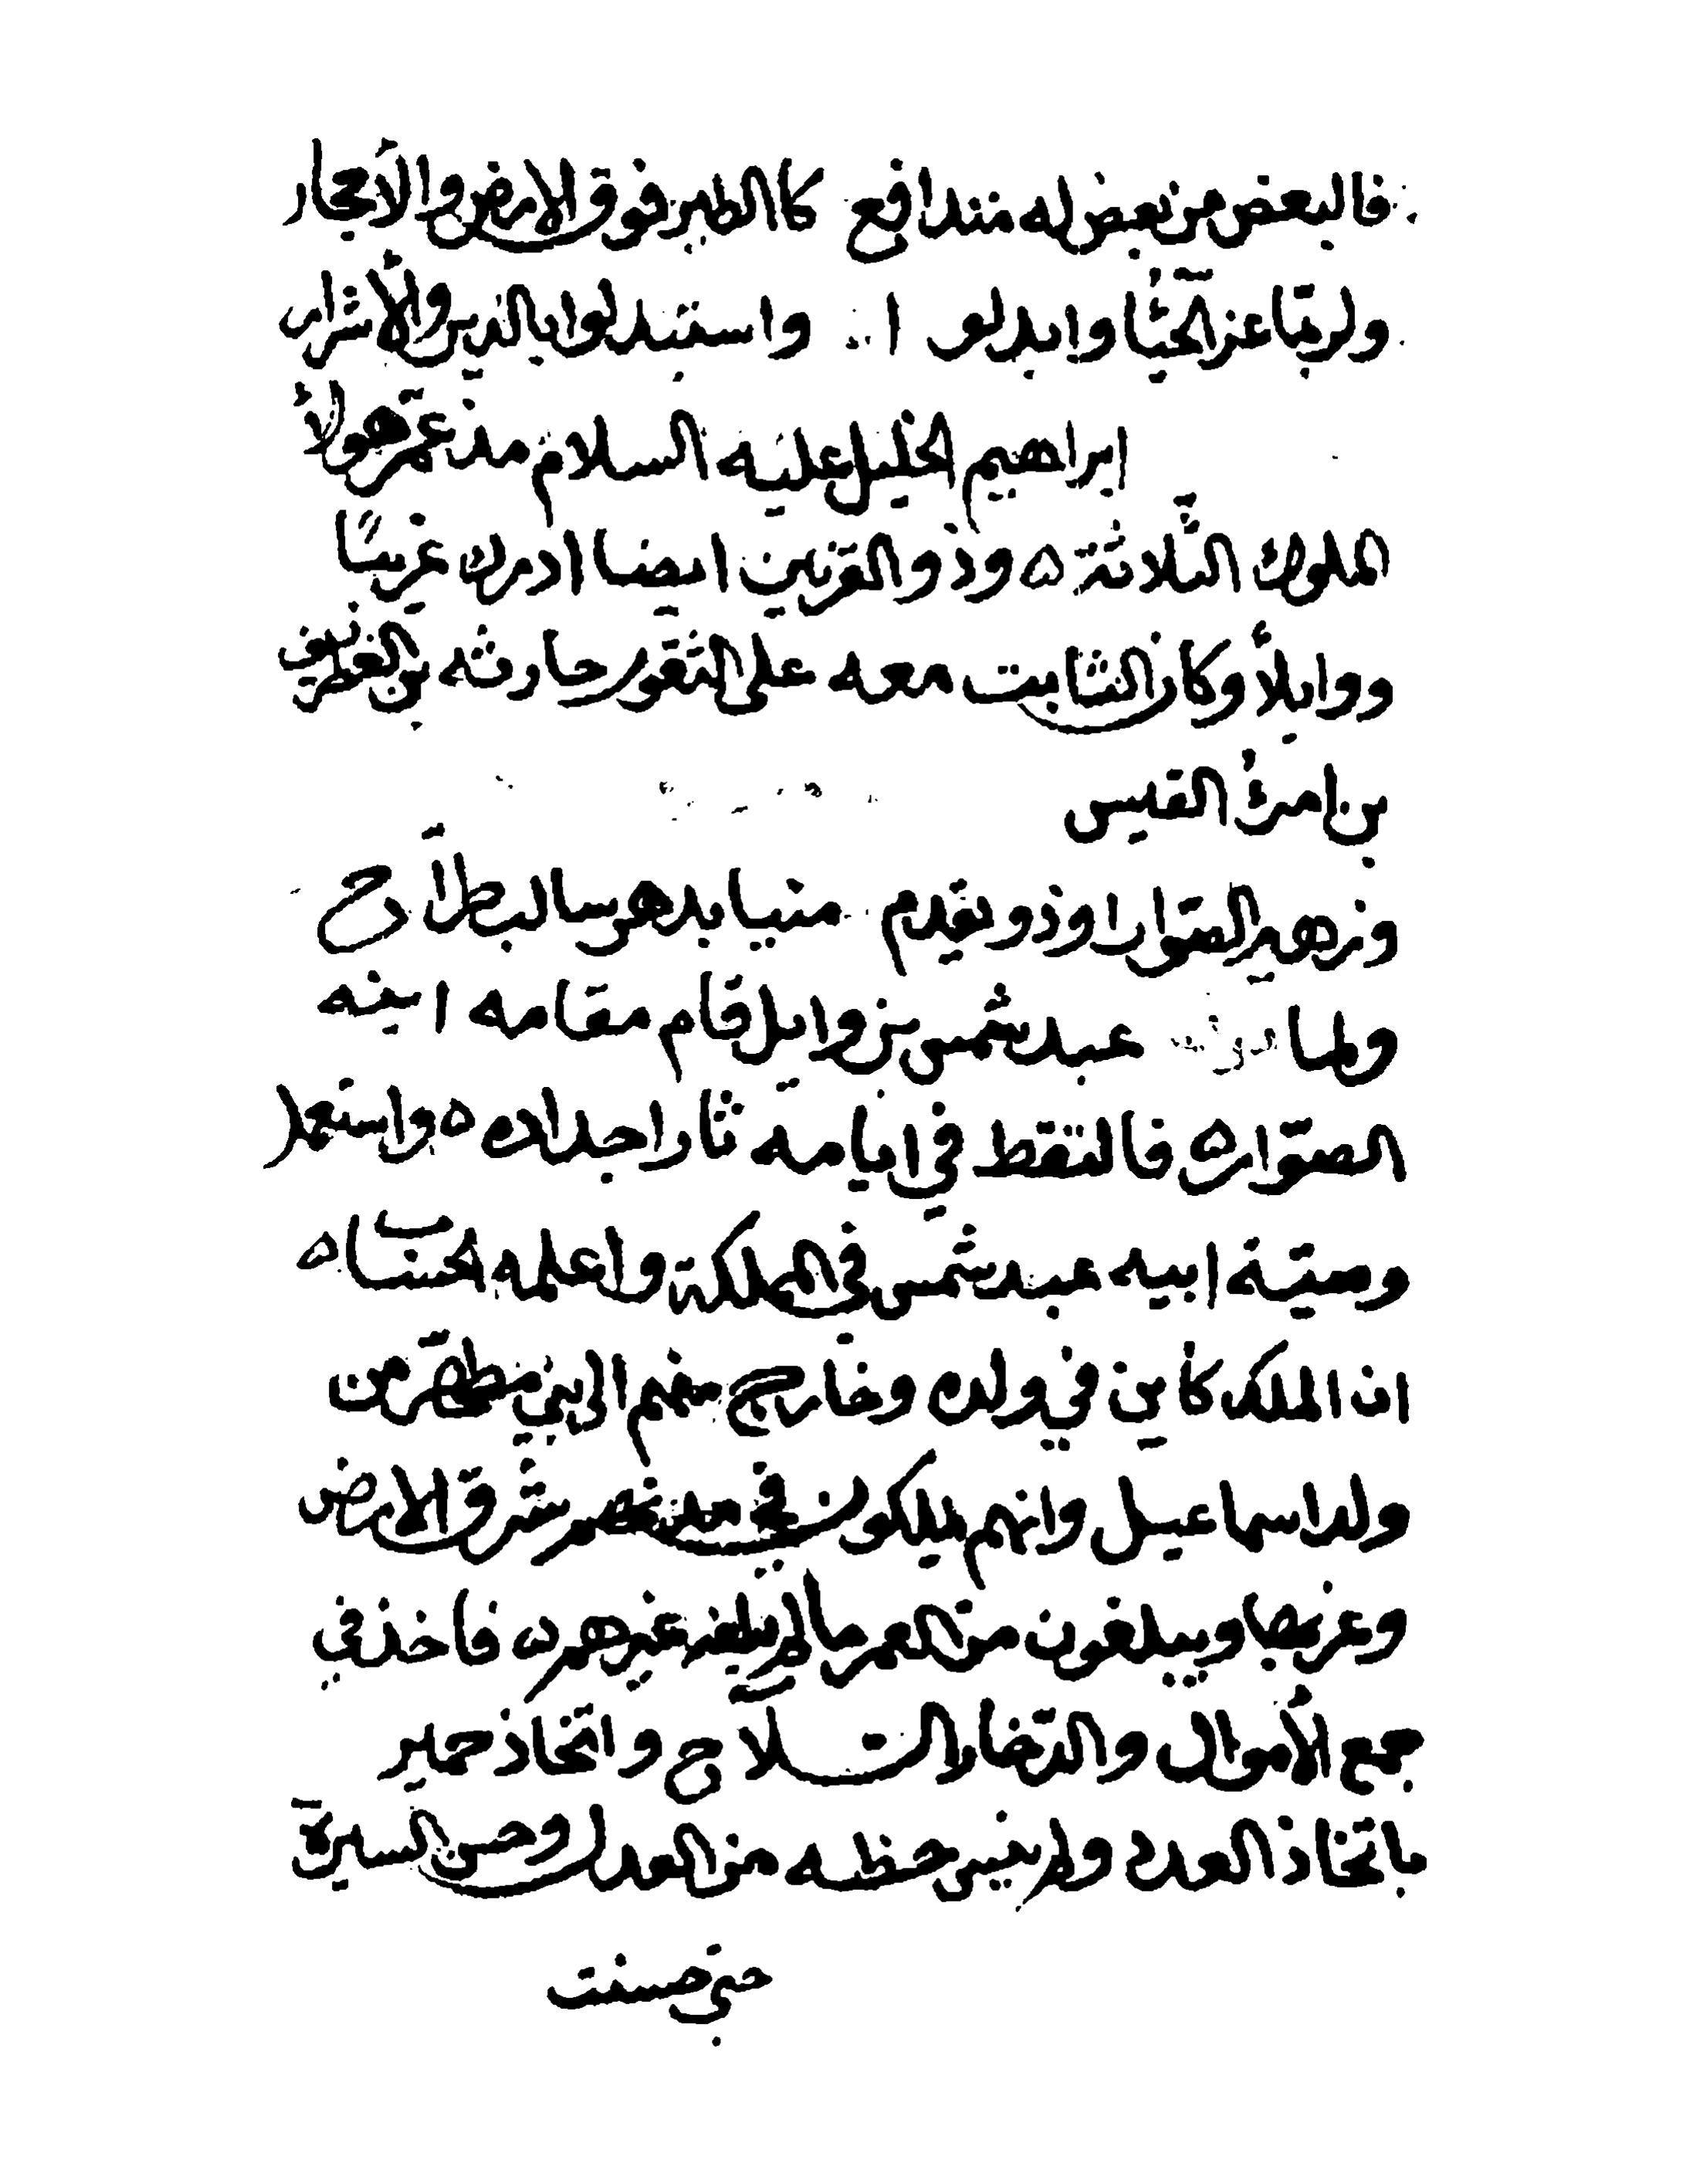 فالبعض من بعض له متدافع كالطير فوق الارض والأبحار
ولربما عز وابدلوا واستبدلوا بالدين والأشرار
ابراهيم الخليل عليه السلام مذ عمر هولاء
الملوك الثلاثة ه وذو القرنين ايضا ادرك عريبًا
ووايلاً وكان الثابت معه على الثغور حارثه بن الغطريف
بن امرئ القيس
وزهير الصوار وذو يقدم
ولما عبد شمس بن وايل قام مقامه ابنه
الصوّار ه فالتقط في ايامه ثار اجداده ه واستعمل
وصيّة ابيه عبد شمس في المملكة واعلمه
ان الملك كاين في ولده وخارج منهم الى بني مطهر من
ولد اسماعيل وانهم يملكون في شرق الارض
وغربها ويبلغون من العز ما لم يبلغه غيرهم ه فاخذ في
جمع الأموال والتخار السلاح واتخاذ حمير
باتخاذ العدد ولم يغير حظه من العدل وحسن السيرة
حتى حسنت